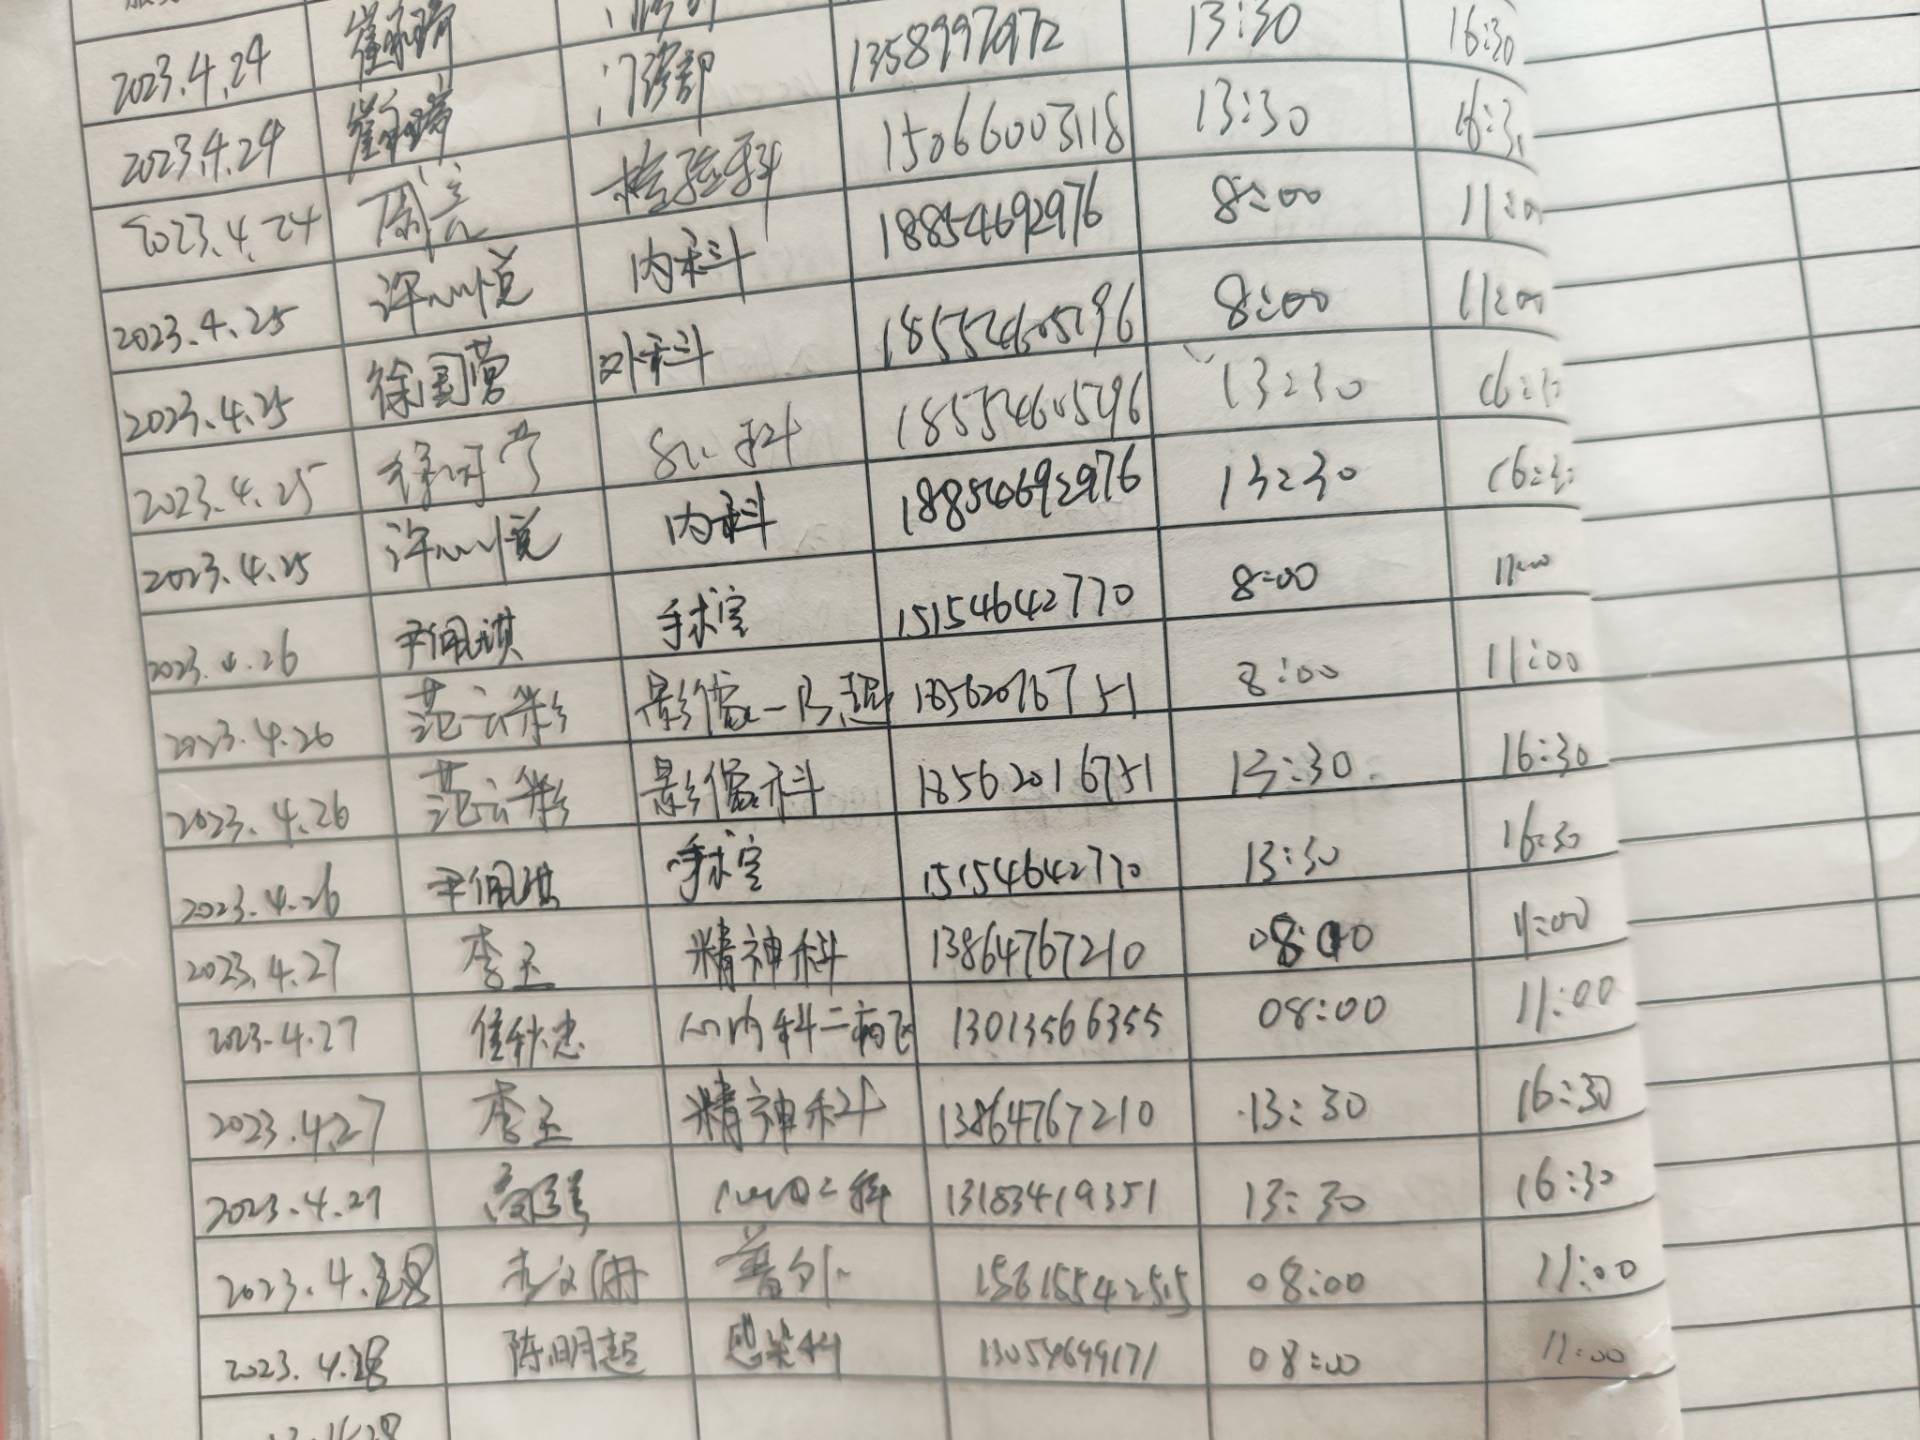 2023.4.24 门诊部 13589979972 13:30 16:30
2023.4.24 检验科 15066003118 13:30 16:3
2023.4.24 周亮 内科 18854692976 8:00 11:00
2023.4.25 许心悦 外科 18554605296 8:00 11:00
2023.4.25 徐国营 外科 18554605296 13:30 16:3
2023.4.25 内科 18854692976 13:30 16:3
2023.4.25 许心悦 手术室 15154642770 8:00 11:00
2023.4.26 尹佩琪 影像 18562016751 8:00 11:00
2023.4.26 范云彩 影像科 18562016751 13:30 16:30
2023.4.26 范云彩 手术室 15154642770 13:30 16:30
2023.4.26 尹佩琪 精神科 13864767210 08:00 11:00
2023.4.27 李玉 心内科二病区 13013566355 08:00 11:00
2023.4.27 精神科 13864767210 13:30 16:30
2023.4.27 李玉 二科 13183419351 13:30 16:30
2023.4.27 普外 15615542515 08:00 11:00
2023.4.28 感染科 13054699171 08:00 11:00
2023.4.28 陈明超